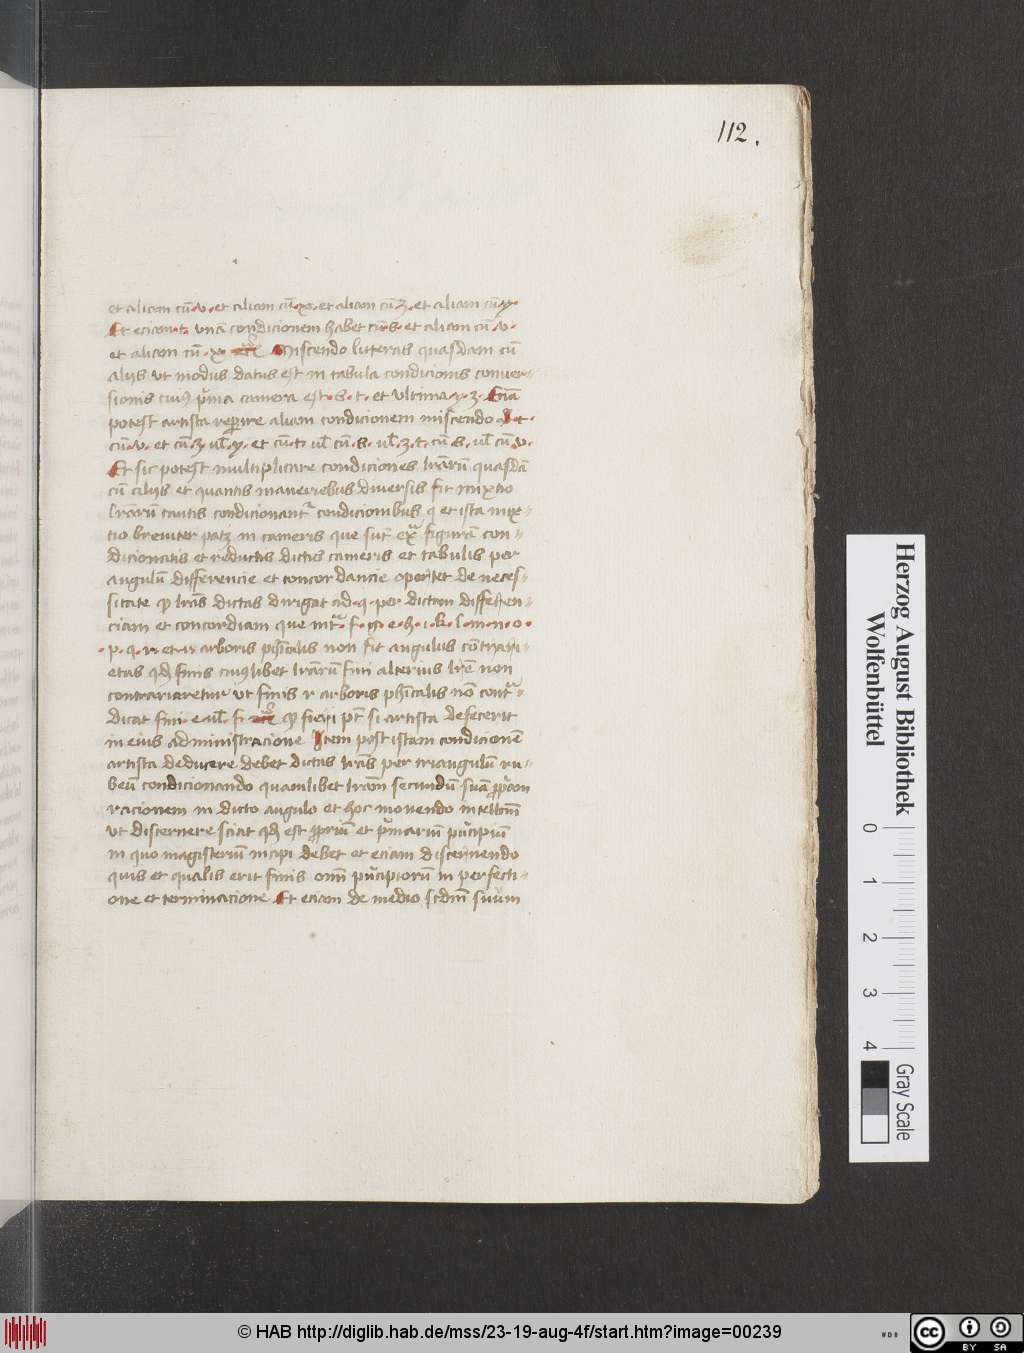 112.
et aliam cū ·v· et aliam cū ·x· et aliam cū ·z· et aliam cū ·y·
Et eciam ·t· vnā condicionem habet cū ·s· et aliam cū ·v·
et aliam cū ·x· Miscendo litteras quasdam cū
alijs vt modus datus est in tabula condicionis conuer-
sionis cuiꝰ pͥma camera est ·s· t· et vltima ·y· z· Eciā
potest artista reperire aliam condicionem miscendo t·
cū ·v· et cū ·z· vl̄ ·y· et cū ·t· vl̄ cū ·s· vl̄ ·z· t· cū ·s· vl̄ cū ·v·
Et sic potest multiplicare condiciones lr̄arū quasdā
cū alijs et quantis maneriebus diuersis fit mixtio
lr̄arū tantis condicionant᷑ condicionibus q̄ et ista mix-
tio breuiter patꝫ in cameris que sūt exͣ figurā con-
dicionatis et reductis dictis cameris et tabulis per
angulū differencie et concordancie oportet de neces-
sitate ꝙ lr̄as dictas dirigat ad ·q· per dictam differen-
ciam et concordiam que intͣ ·f· g· e· h· i· k· l· m· n· o·
·p· q· r· et arboris ph̄icalis non fit angulus cōtrari-
etas qd̄ finis cuiꝰlibet lr̄arū fini alterius lr̄e non
contrariaretur vt finis r arboris ph̄icalis nō contͣ-
dicat fini ·e· vl̄ ·f· ꝙ fieri pt̄ si artista defecerit
in eius administracione Item post istam condicionē
artista deducere debet dictas lr̄as per triangulū ru-
beū condicionando quamlibet lr̄am secundū suā ꝓpͥam
racionem in dicto angulo et hoc mouendo intellc̄m
vt discernere sciat qd̄ est ꝓpriū et pͥmariū pͥncipiū
in quo magisteriū incipi debet et eciam discernendo
quis et qualis erit finis om̄ pͥncipiorū in perfecti-
one et terminacione Et eciam de medio scdm̄ suum
Herzog August Bibliothek
Wolfenbüttel
0 1 2 3 4
Gray Scale
© HAB http://diglib.hab.de/mss/23-19-aug-4f/start.htm?image=00239
WDB
cc BY SA